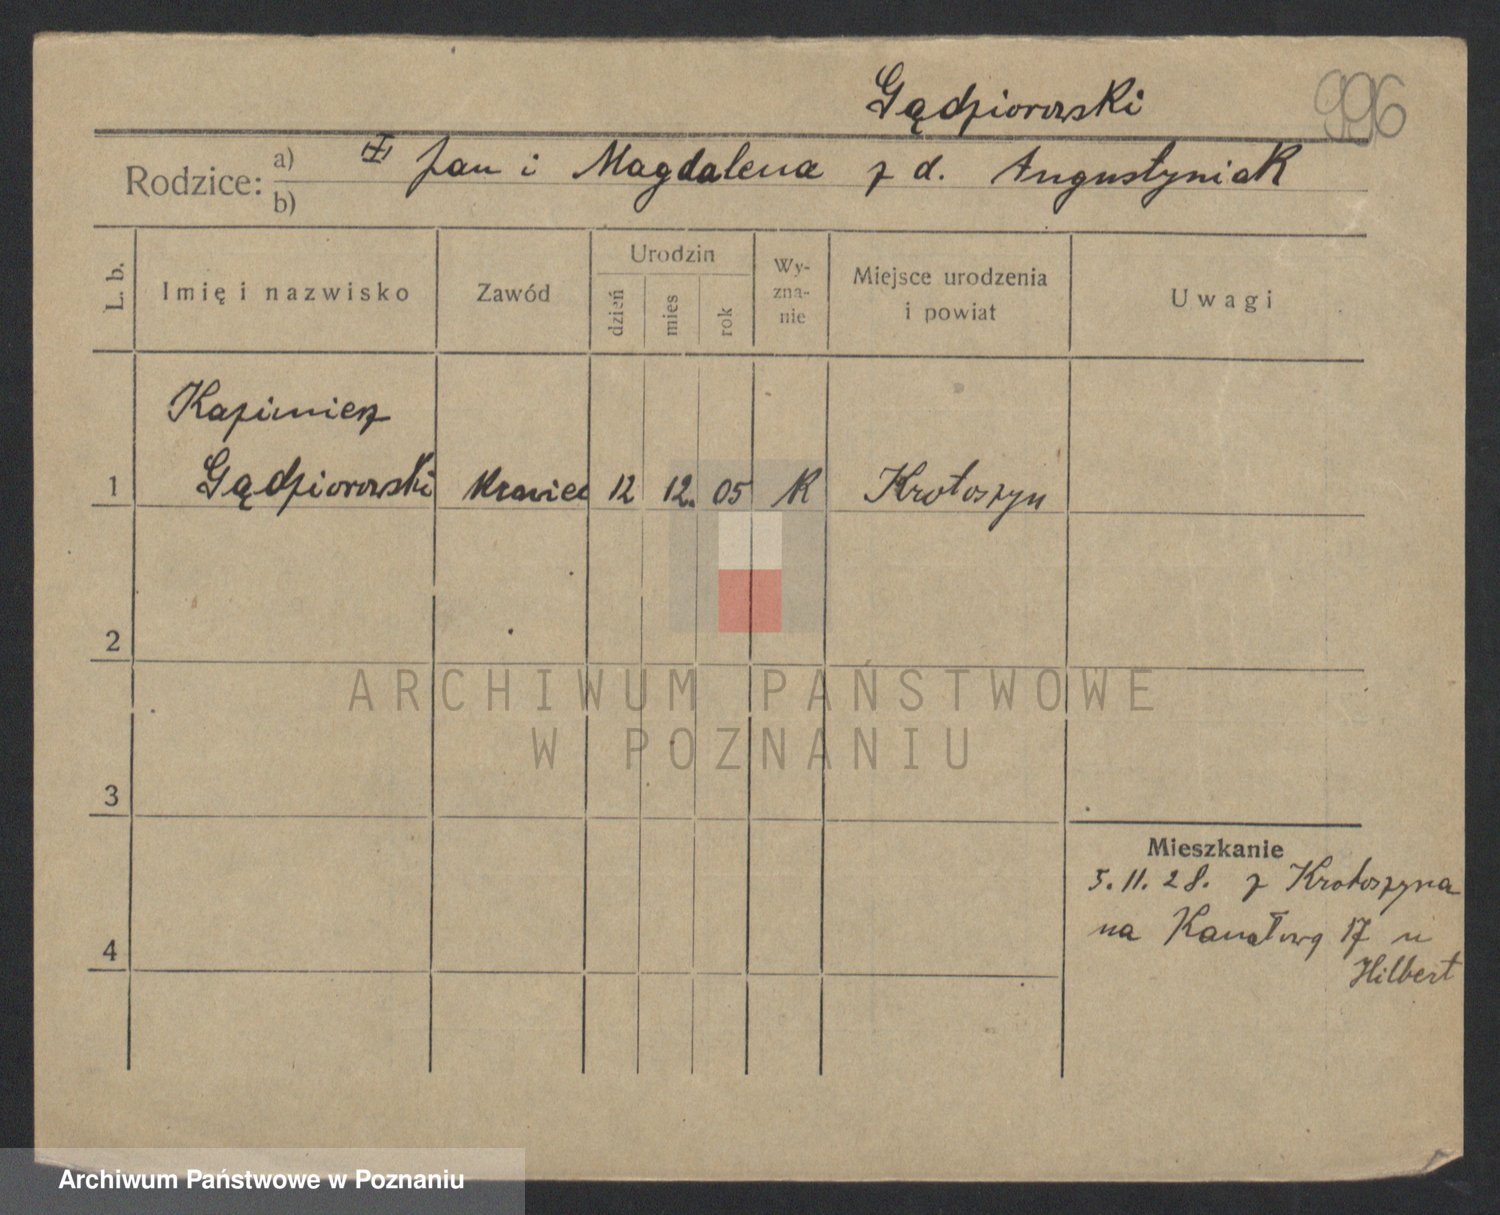 Gądziorowski
996
Rodzice: a) Jan i Magdalena z d. Augustyniak
b)
L. b.
Imię i nazwisko
Zawód
Urodzin
dzień
mies
rok
Wy-
zna-
nie
Miejsce urodzenia
i powiat
Uwagi
Kazimierz
1 Gądziorowski krawiec 12 12. 05 K Krotoszyn
2
3
4
Mieszkanie
5.11.28. z Krotoszyna
na Kanałową 17 u
Hilbert
ARCHIWUM PAŃSTWOWE
W POZNANIU
Archiwum Państwowe w Poznaniu